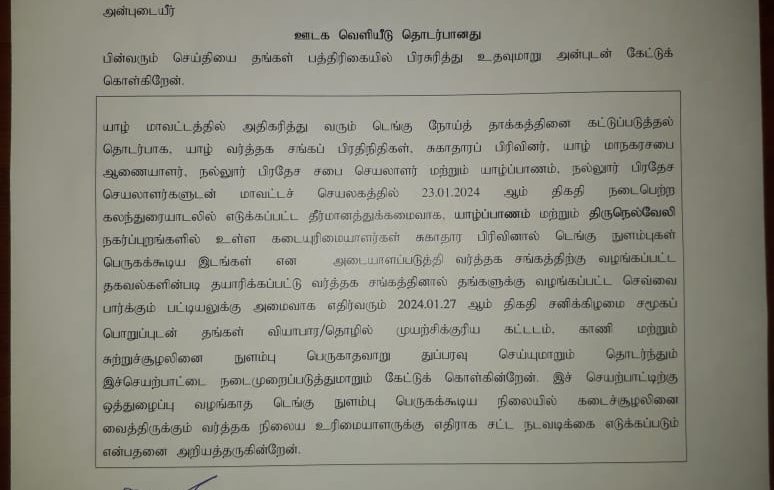 அன்புடையீர்
ஊடக வெளியீடு தொடர்பானது
பின்வரும் செய்தியை தங்கள் பத்திரிகையில் பிரசுரித்து உதவுமாறு அன்புடன் கேட்டுக்
கொள்கிறேன்.
யாழ் மாவட்டத்தில் அதிகரித்து வரும் டெங்கு நோய்த் தாக்கத்தினை கட்டுப்படுத்தல்
தொடர்பாக, யாழ் வர்த்தக சங்கப் பிரதிநிதிகள், சுகாதாரப் பிரிவினர், யாழ் மாநகரசபை
ஆணையாளர், நல்லூர் பிரதேச சபை செயலாளர் மற்றும் யாழ்ப்பாணம், நல்லூர் பிரதேச
செயலாளர்களுடன் மாவட்டச் செயலகத்தில் 23.01.2024 ஆம் திகதி நடைபெற்ற
கலந்துரையாடலில் எடுக்கப்பட்ட தீர்மானத்துக்கமைவாக, யாழ்ப்பாணம் மற்றும் திருநெல்வேலி
நகர்ப்புறங்களில் உள்ள கடையுரிமையாளர்கள் சுகாதார பிரிவினால் டெங்கு நுளம்புகள்
பெருகக்கூடிய இடங்கள் என அடையாளப்படுத்தி வர்த்தக சங்கத்திற்கு வழங்கப்பட்ட
தகவல்களின்படி தயாரிக்கப்பட்டு வர்த்தக சங்கத்தினால் தங்களுக்கு வழங்கப்பட்ட செவ்வை
பார்க்கும் பட்டியலுக்கு அமைவாக எதிர்வரும் 2024.01.27 ஆம் திகதி சனிக்கிழமை சமூகப்
பொறுப்புடன் தங்கள் வியாபார/தொழில் முயற்சிக்குரிய கட்டடம், காணி மற்றும்
சுற்றுச்சூழலினை நுளம்பு பெருகாதவாறு துப்பரவு செய்யுமாறும் தொடர்ந்தும்
இச்செயற்பாட்டை நடைமுறைப்படுத்துமாறும் கேட்டுக் கொள்கின்றேன். இச் செயற்பாட்டிற்கு
ஒத்துழைப்பு வழங்காத டெங்கு நுளம்பு பெருகக்கூடிய நிலையில் கடைச்சூழலினை
வைத்திருக்கும் வர்த்தக நிலைய உரிமையாளருக்கு எதிராக சட்ட நடவடிக்கை எடுக்கப்படும்
என்பதனை அறியத்தருகின்றேன்.